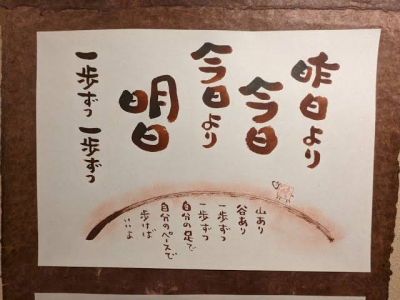 昨日より
今日
今日より
明日
一歩ずつ 一歩ずつ
山あり
谷あり
一歩ずつ
一歩ずつ
自分の足で
自分のペースで
歩けば
いいよ